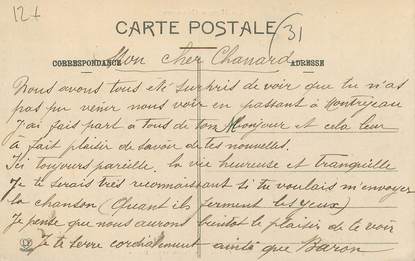 12+
CARTE POSTALE
31
CORRESPONDANCE
ADRESSE
Mon cher Chanard
Nous avons tous été surpris de voir que tu n'as
pas pu venir nous voir en passant à Montrejeau
J'ai fais part à tous de ton Monjour et cela leur
a fait plaisir de savoir de tes nouvelles.
Ici toujours pareille. la vie heureuse et tranquille
Je te serais très reconnaissant si tu voulais m'envoyer
la chanson (Quant ils ferment les yeux)
Je pense que nous aurons bientot le plaisir de te voir
Je te serre cordialement ainsi que Baron